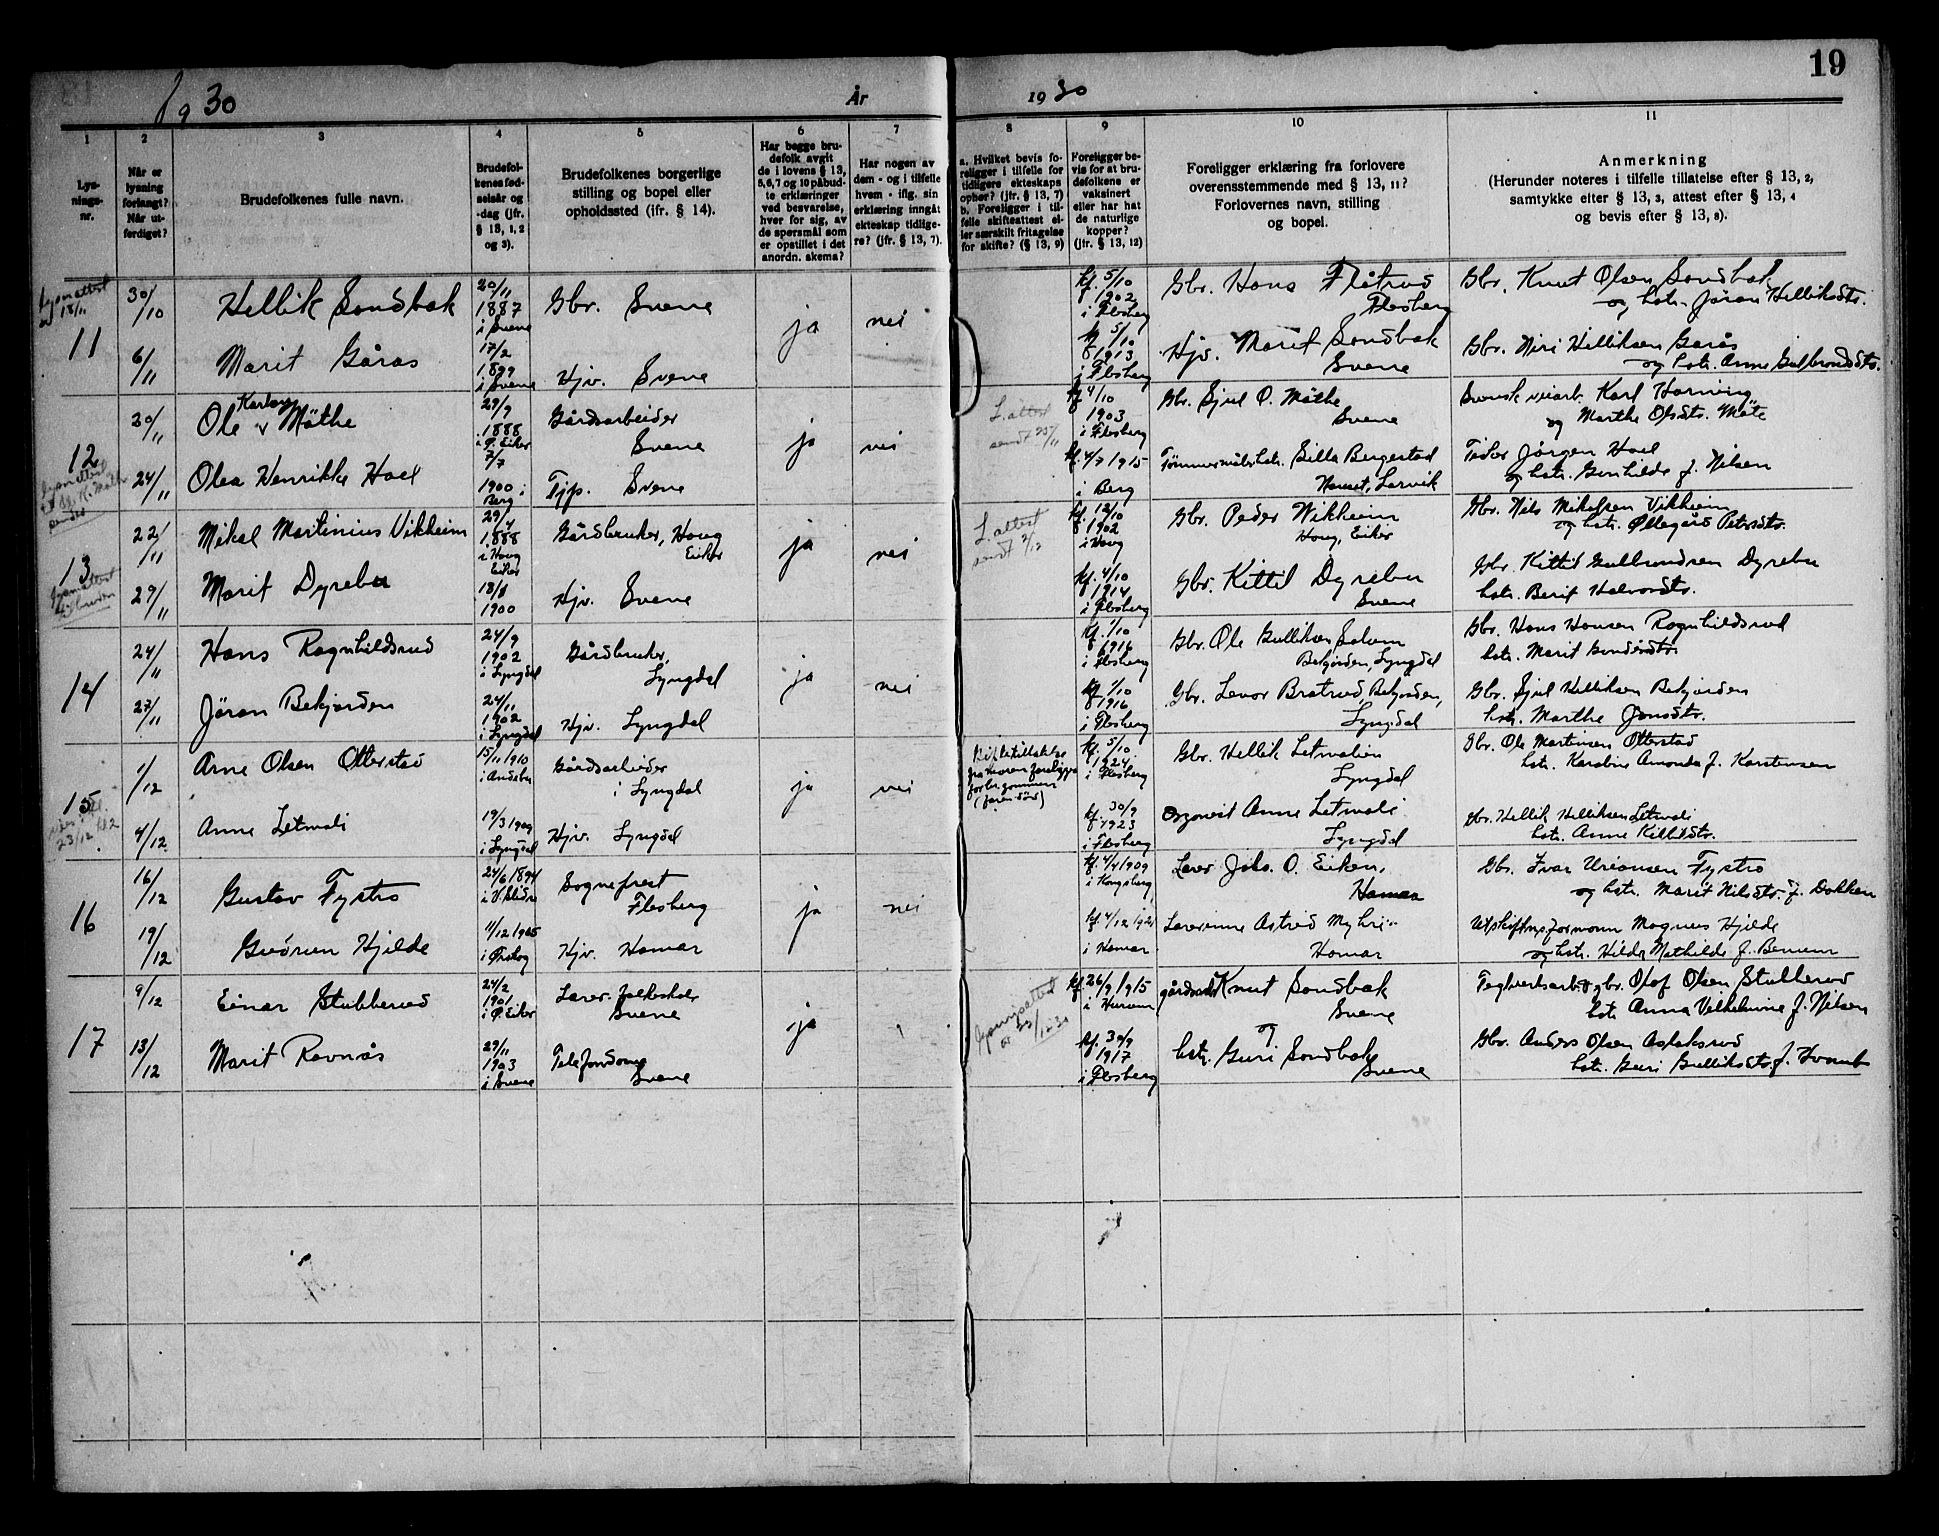 19
1930
År
1930
1
Lysningsnr.
2
Når er lysning forlangt? Når utferdiget?
3
Brudefolkenes fulle navn.
4
Brudefolkenes fødselsår og -dag (jfr. § 13, 1, 2 og 3).
5
Brudefolkenes borgerlige stilling og bopel eller opholdssted (ifr. § 14).
6
Har begge brudefolk avgit de i lovens § 13, 5, 6, 7 og 10 påbudte erklæringer ved besvarelse, hver for sig, av de spørsmål som er opstillet i det anordn. skema?
7
Har nogen av dem - og i tilfelle hvem - iflg. sin erklæring inngått ekteskap tidligere? (jfr. § 13, 7).
8
a. Hvilket bevis foreligger i tilfelle for tidligere ekteskaps ophør? (jfr. § 13, 7)
b. Foreligger i tilfelle skifteattest eller særskilt fritagelse for skifte? (§ 13, 9)
9
Foreligger bevis for at brudefolkene er vaksinert eller har hat de naturlige kopper? (jfr. § 13, 12)
10
Foreligger erklæring fra forlovere overensstemmende med § 13, 11? Forlovernes navn, stilling og bopel.
11
Anmerkning
(Herunder noteres i tilfelle tillatelse efter § 13, 2, samtykke efter § 13, 3, attest efter § 13, 4 og bevis efter § 13, 8).
11
30/10
Hellik Sondbak
20/11 1887 i Svene
Gbr. Svene
ja
nei
5/10 1902 i Flesberg
Gbr. Hans Flåtrud
Flesberg
Gbr. Knut Olsen Sondbak
og hstr. Jøran Helliksdtr.
6/11
Marit Gåras
17/2 1899 i Svene
Hjv. Svene
5/10 1913 i Flesberg
Hjv. Marit Sondbak
Svene
Gbr. Niri Helliksen Garås
og hstr. Anne Gulbrandsdtr.
12
20/11
Ole Karlsen Møthe
29/9 1888 i Ø. Eiker
Gårdsarbeider
Svene
ja
nei
L. attest sendt 25/11
4/10 1903 i Flesberg
Gbr. Sjul O. Møthe
Svene
Svensk veiarb. Karl Horning
og Marthe Olsdtr. Møte
24/11
Olea Henrikke Hoel
7/7 1900 i Berg
Tjp. Svene
4/7 1915 i Berg
Tømmermålerhstr. Silla Bergestad
Larvik
Jørgen Hoel
og hstr. Gunhilde f. Nilsen
13
22/11
Mikal Martinius Vikheim
29/4 1888 i Houg Eiker
Gårdbruker, Houg
Eiker
ja
nei
L. attest sendt 2/12
12/10 1902 i Houg
Gbr. Peder Wikheim
Houg, Eiker
Gbr. Nils Mikalsen Vikheim
og hstr. Øllegård Petersdtr.
29/11
Marit Dyrebu
18/8 1900
Hjv. Svene
4/10 1914 i Flesberg
Gbr. Kittil Dyrebu
Svene
Gbr. Kittil Gulbrandsen Dyrebu
hstr. Berit Halvorsdtr.
14
24/11
Hans Ragnhildsrud
24/9 1902 i Lyngdal
Gårdbruker,
Lyngdal
ja
nei
1/10 1916 i Flesberg
Gbr. Ole Gulliksen Solum
Bekjorden, Lyngdal
Gbr. Hans Hansen Ragnhildsrud
hstr. Marit Gundersdtr.
27/11
Jøran Bekjorden
24/11 1902 i Lyngdal
Hjv. Lyngdal
1/10 1916 i Flesberg
Gbr. Levor Bratrud, Bekjorden,
Lyngdal
Gbr. Sjul Helliksen Bekjorden
hstr. Marthe Jonsdtr.
15
1/12
Arne Olsen Otterstad
15/11 1910 i Andebu
Gårdsarbeider
i Lyngdal
ja
nei
5/10 1924 i Flesberg
Gbr. Hellik Letmolien
Lyngdal
Gbr. Ole Martinsen Otterstad
hstr. Karoline Amanda f. Karstensen
4/12
Anne Letmoli
19/3 1909 i Lyngdal
Hjv. Lyngdal
30/9 1923 i Flesberg
Anne Letmoli
Lyngdal
Gbr. Hellik Helliksen Letmoli
hstr. Anne Kittilsdtr.
16
16/12
Gustav Fystro
24/6 1894 i V. Slidre
Sogneprest
Flesberg
ja
nei
4/4 1909 i Kongsberg
Lærer Johs. O. Eiken,
Hamar
Gbr. Ivar Fystro
og hstr. Marit Nilsdtr. f. Dokken
19/12
Gudrun Hjelde
11/12 1905 i Ørskog
Hjv. Hamar
4/12 i Hamar
Lærerinne Astrid
Hamar
Utskiftningsformann Magnus Hjelde
og hstr. Hilda Mathilde f.
17
9/12
Einar Stubberud
24/2 1901 i Ø. Eiker
Lærer. Folkeskole
Svene
ja
26/9 1915 i Hurum
Knut Sondbak
Svene
Teglverksarb. & gbr. Olaf Olsen Stubberud
hstr. Anna Vilhelmine f. Nilsen
13/12
Marit Ravnås
29/11 1903 i Svene
Telefondame
Svene
30/9 1917 i Flesberg
og
hstr. Guri Sondbak
Svene
Gbr. Anders Olsen Aslaksrud
hstr. Guri Gulliksdtr. f.